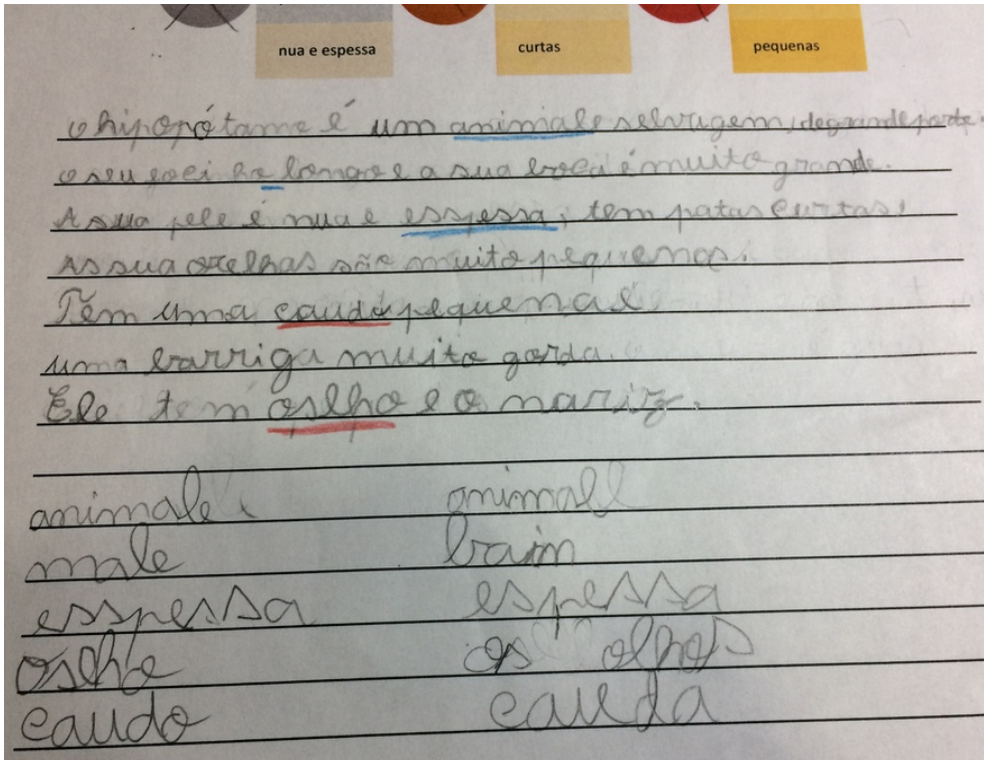 nua e espessa curtas pequenas
O hipopótamo é um animale selvagem, de grande porte.
O seu é longo e a sua boca é muito grande.
A sua pele é nua e esspessa, tem patas curtas,
As sua orelhas são muito pequenas.
Tem uma caudo pequena e
uma barriga muito gorda.
Ele tem oslho e o nariz.
animale animall
male baim
esspessa espessa
oslho os olhos
caudo cauda